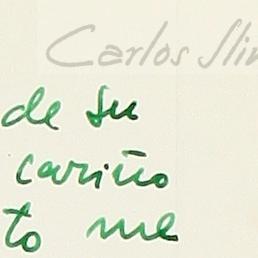 Carlos Slim
de su
cariño
to me